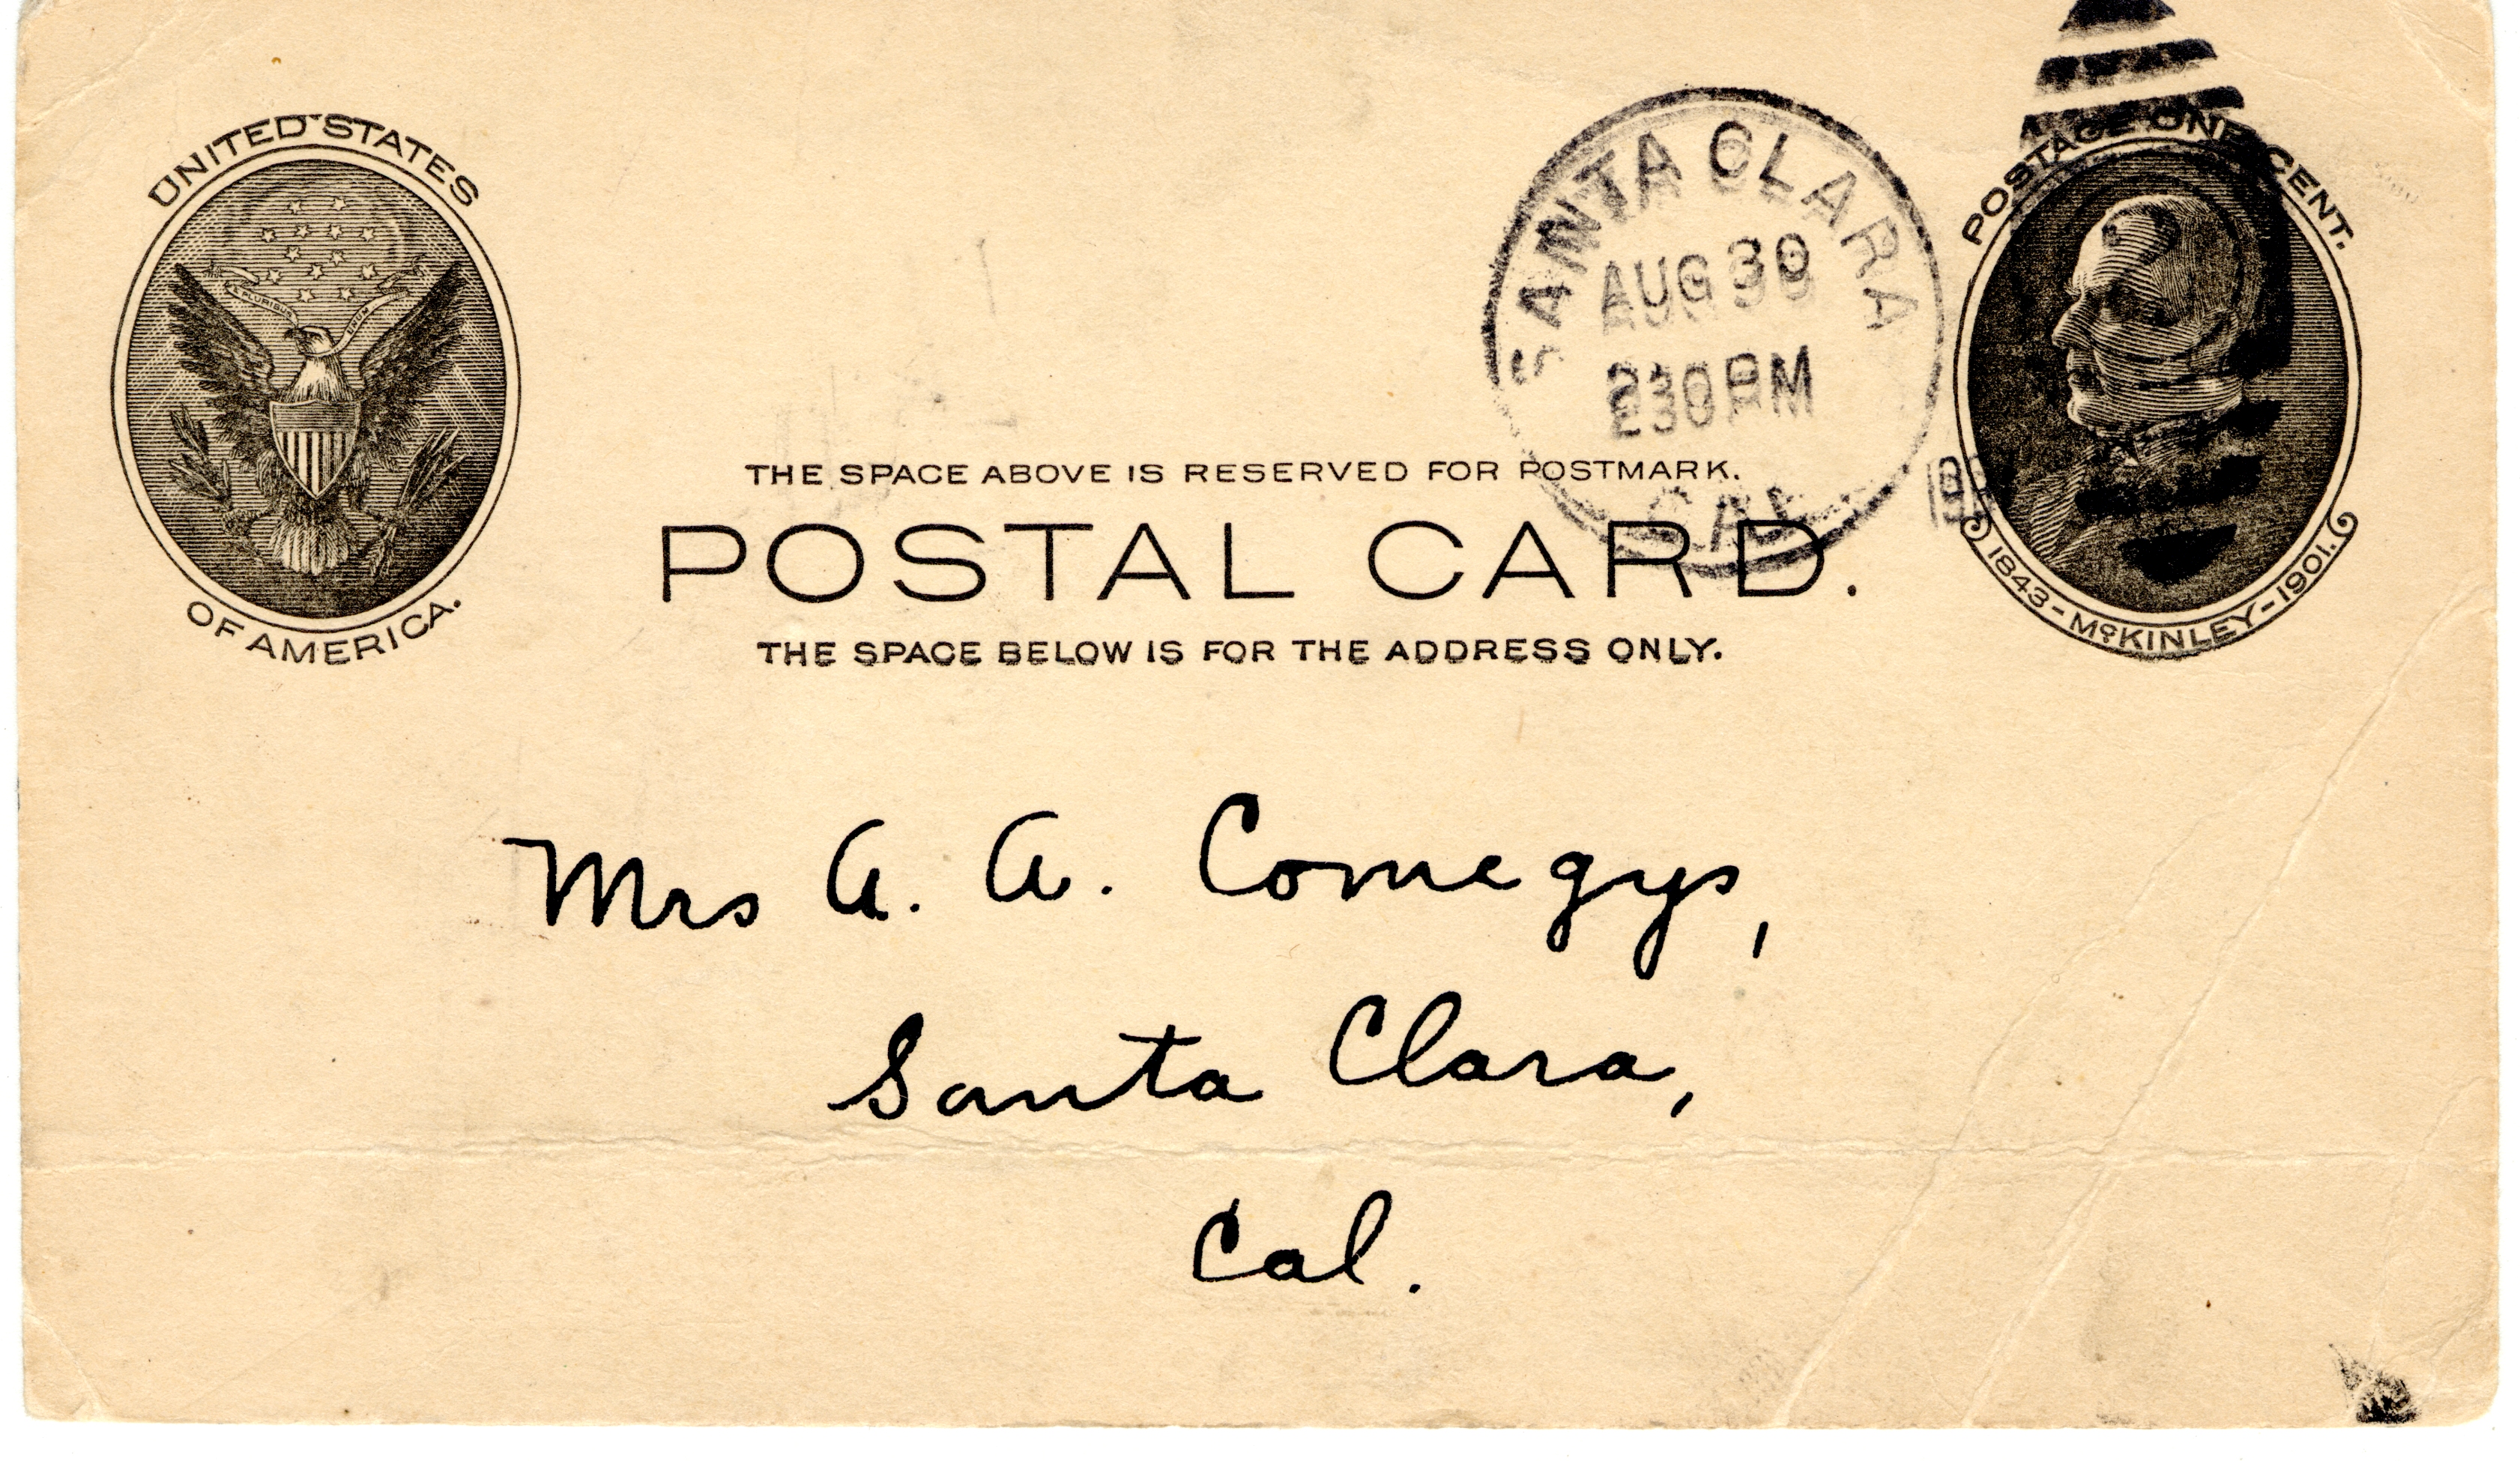 UNITED STATES
OF AMERICA.
POSTAGE ONE CENT.
1843-McKINLEY-1901.
SANTA CLARA
AUG 30
230 PM
CAL.
THE SPACE ABOVE IS RESERVED FOR POSTMARK.
POSTAL CARD.
THE SPACE BELOW IS FOR THE ADDRESS ONLY.
Mrs A. A. Comegys,
Santa Clara,
Cal.